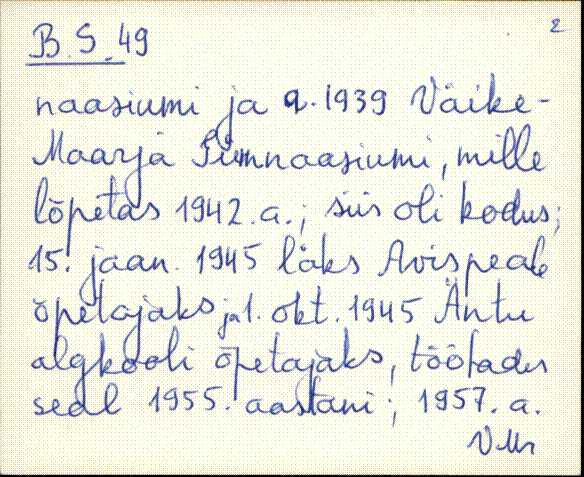 2
B.S. 49
naasiumi ja a. 1939 Väike-
Maarja Gümnaasiumi, mille
lõpetas 1942. a.; siis oli kodus;
15. jaan. 1945 läks Avispeale
õpetajaks ja 1. okt. 1945 Äntu
algkooli õpetajaks, töötades
seal 1955. aastani; 1957. a.